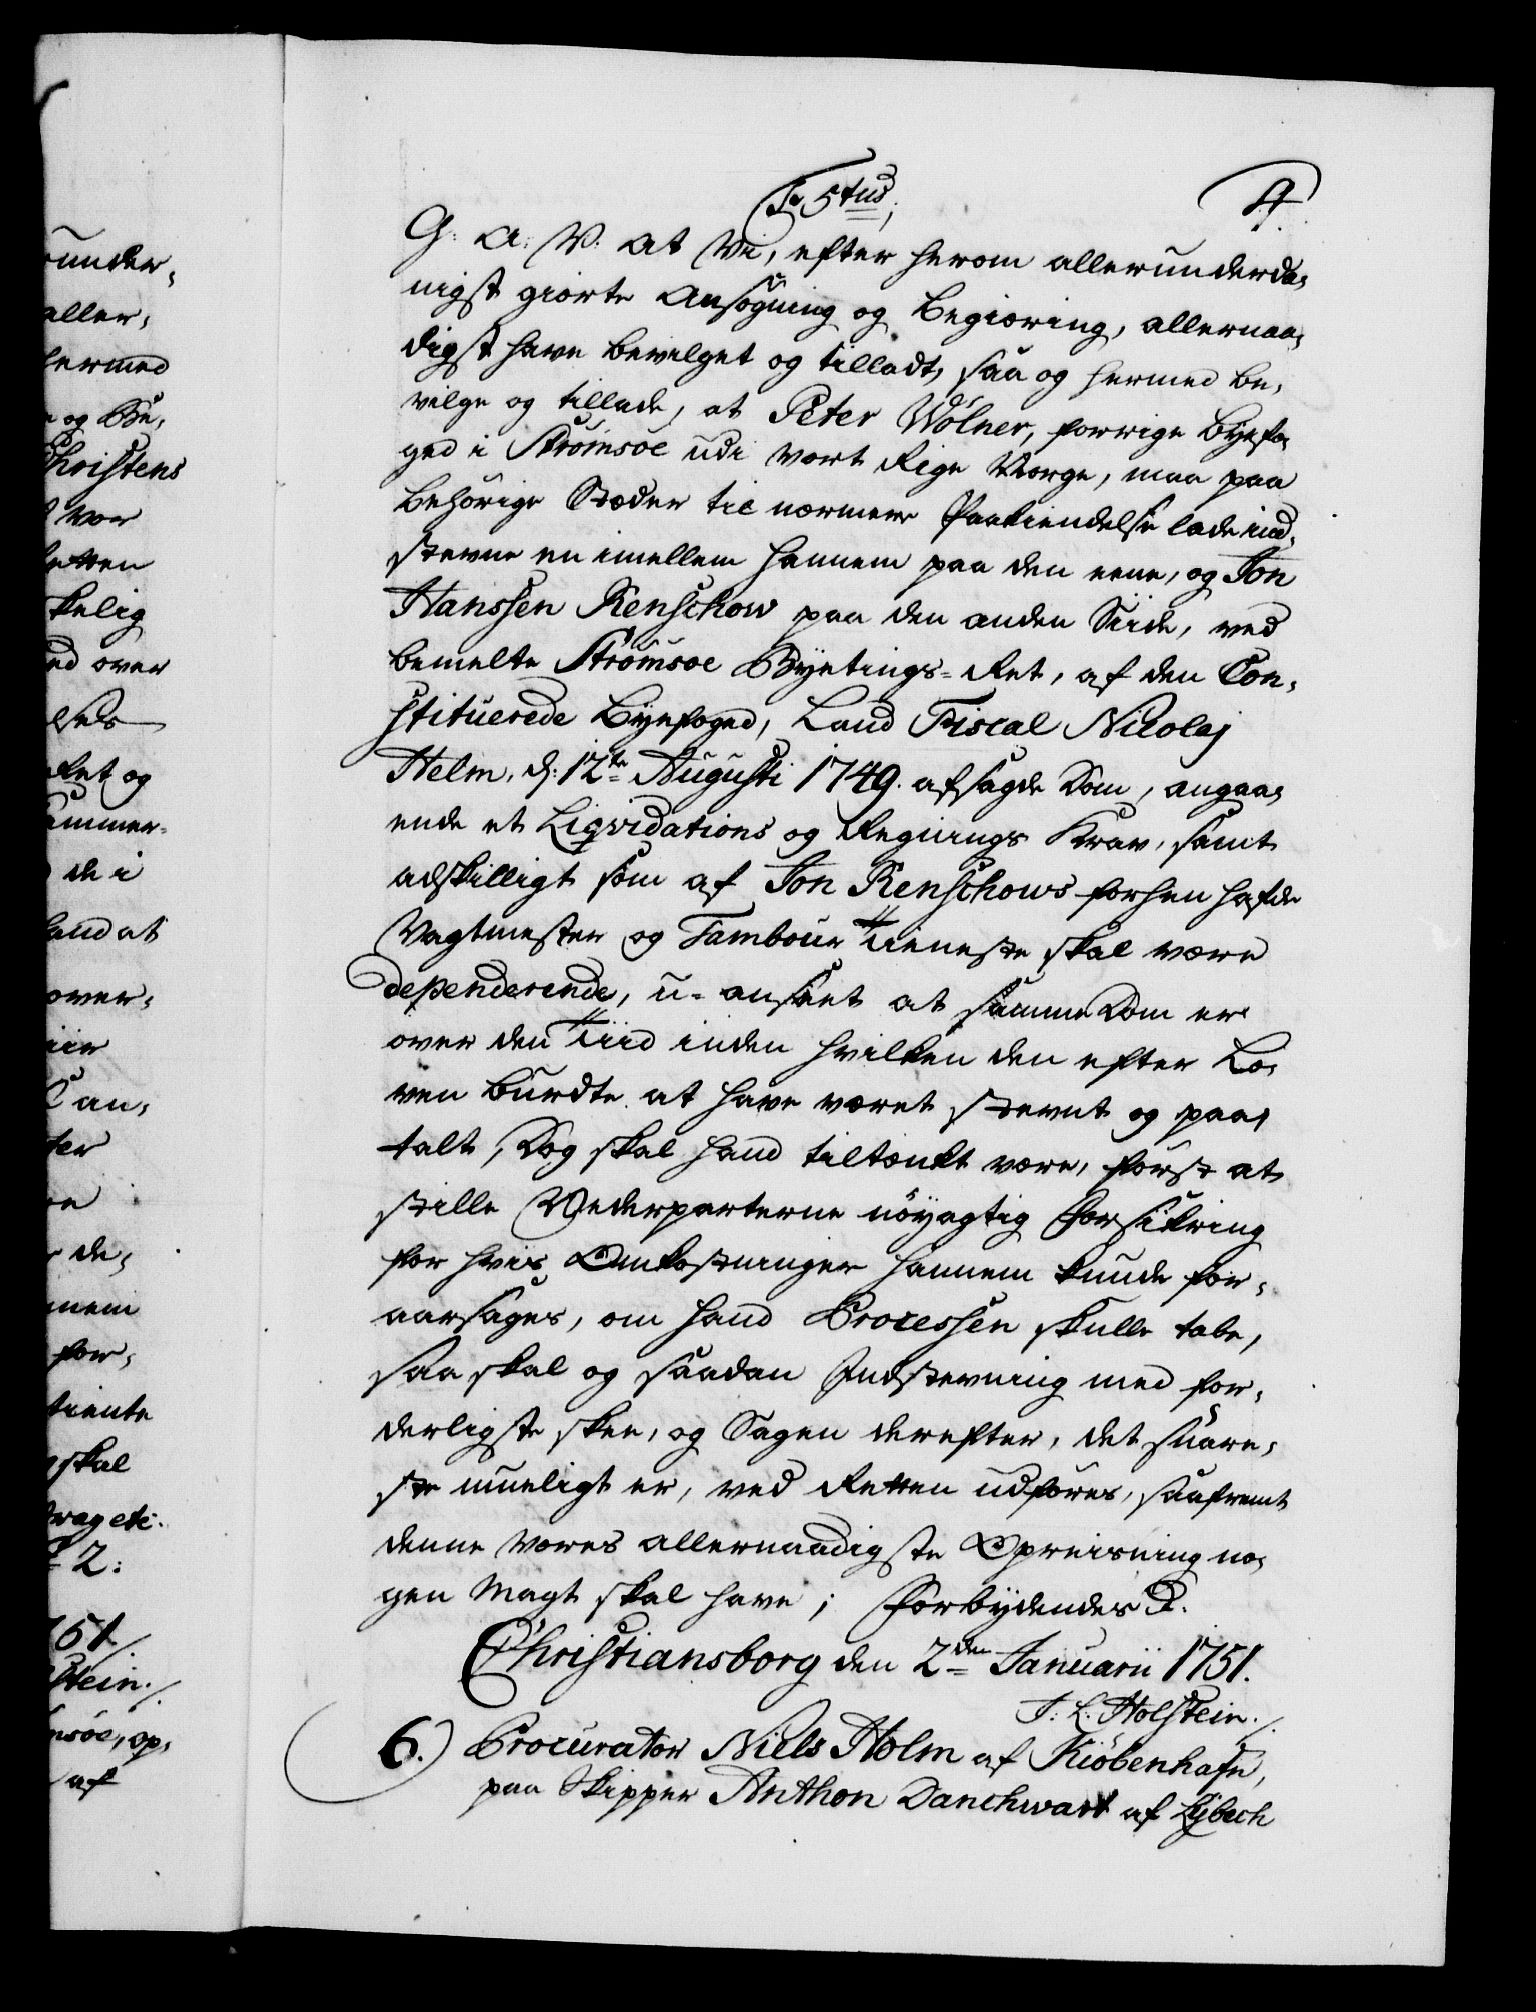 F. 5tus,
4
G: A: V: at Vi, efter herom allerunderda,
nigst giorte Ansøgning og Begiæring, allernaa,
digst have bevilget og tilladt, saa og hermed be,
vilge og tillade, at Peter Wölner, forrige Byefo,
ged i Strømsøe udi vort Rige Norge, maa paa
behørige Stæder til nærmere Paakiendelse lade ind,
stevne en imellem hannem paa den eene, og Jon
Hanssen Renschow paa den anden Siide, ved
bemelte Strømsøe Byetings-Ret, af den Con,
stituerede Byefoged, Land Fiscal Nicolaj
Helm, d: 12te Augusti 1749. afsagde Dom, angaa,
ende et Liqvidations og Regnings Krav, samt
adskilligt som af Jon Renschows forhen hafde
Vagtmester og Tambour Tieneste skal være
dependerende, u-anseet at samme Dom er
over den Tiid inden hvilken den efter Lo,
ven burdte at have været stevnt og paa,
talt, Dog skal hand tiltænkt være, først at
stille Vederparterne nöyagtig Forsikring
for hvis Omkostninger hannem kunde for,
aarsages, om hand Processen skulle tabe,
saa skal og saadan Indstevning med for,
derligste skee, og Sagen derefter, det snare,
ste mueligt er, ved Retten udføres, saafremt
denne Vores allernaadigste Opreisning no,
gen Magt skal have; Forbydendes &.
Christiansborg den 2den Januarii 1751.
J. L. Holstein./.
6.) Procurator Niels Holm af Kiöbenhafn,
paa Skipper Anthon Danchwart af Lybech
under,
aller,
hermed
og Be,
Christens
vor
Retten
kelig
ed over
Ret og
de i
land at
over,
Can,
de,
for,
tiente
skal
2:
1751
stein./.
søe, op,
af